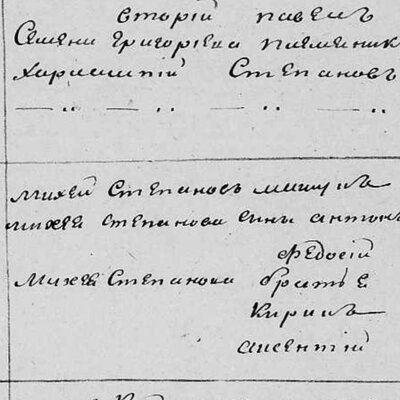 вторый павелъ
Семена Григорьева племяник
Харлампий Степановъ
— „ — „ — „ — „
Михей Степановъ мишукъ
Михея степанова сынъ антонъ
Федосий
Михея Степанова братья
Кирилъ
Авсентий